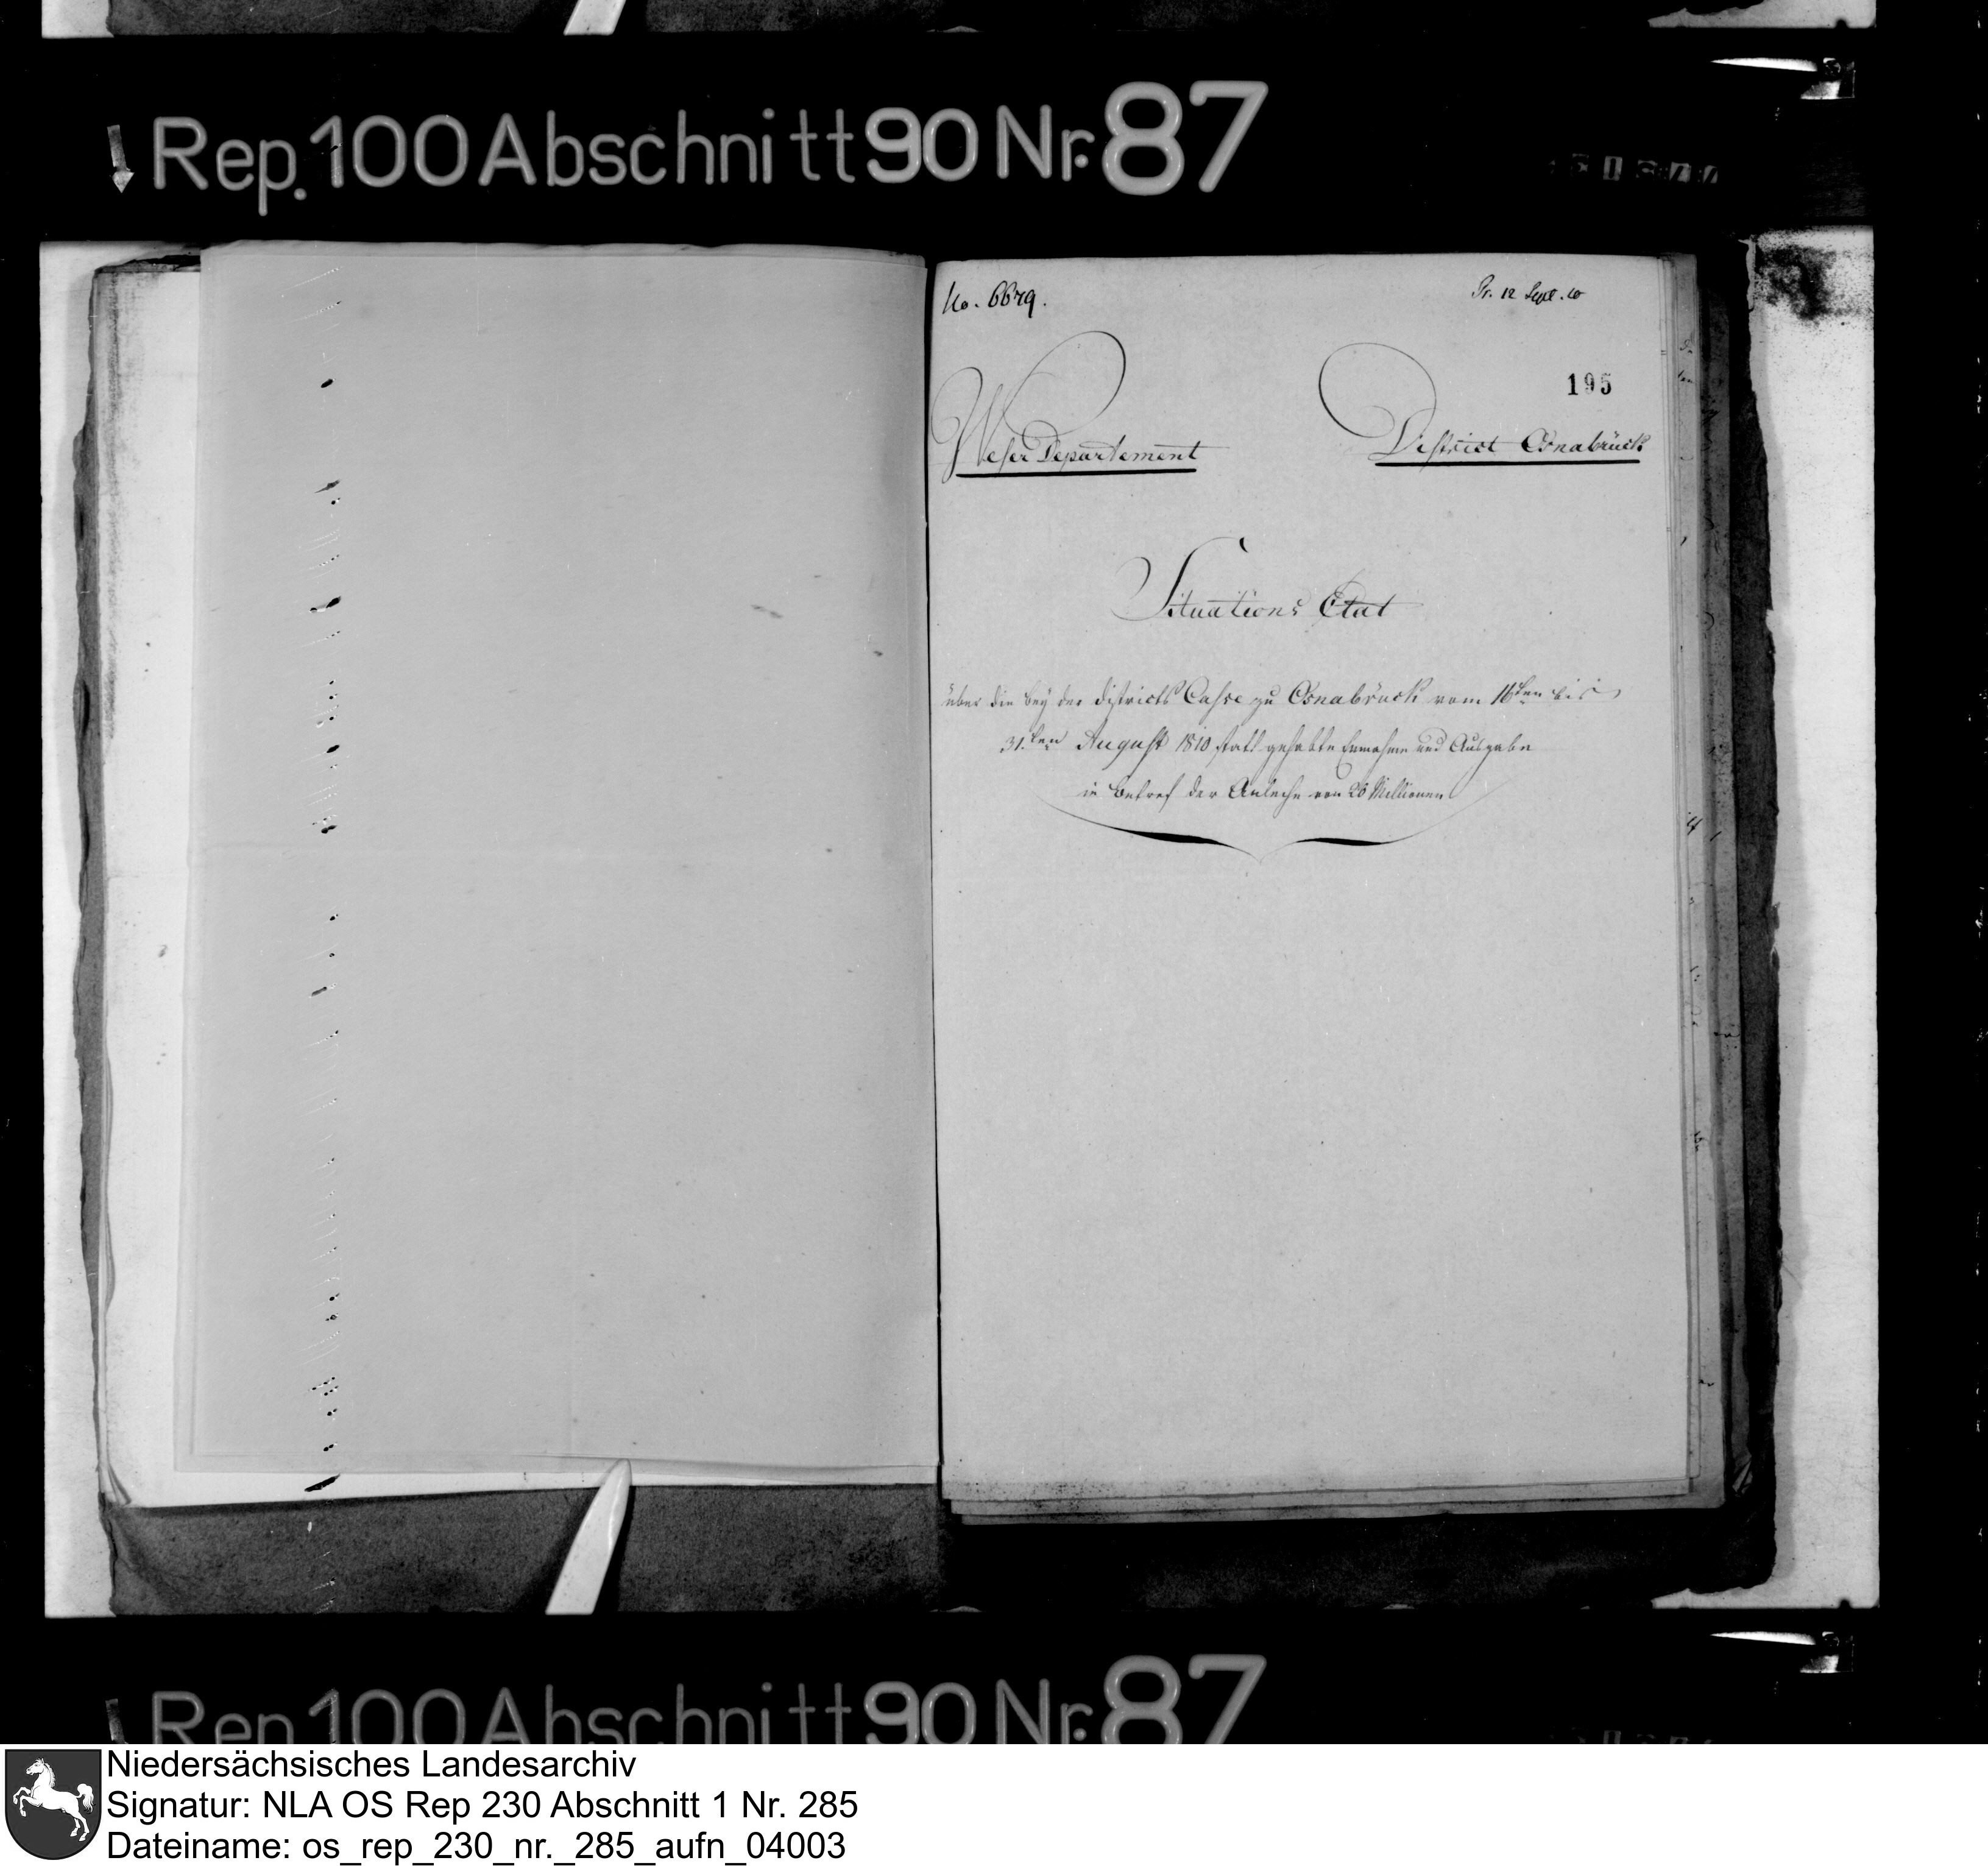 Rep. 100 Abschnitt 90 Nr. 87
No. 6679.
Pr. 12 Sept. 10
195
Weser Departement
District Osnabrück
Situations Etat
über die bey der Districts Casse zu Osnabrück vom 16ten bis
31.ten August 1810 statt gehabte Einnahme und Ausgabe
in Betref der Anleihe von 20 Millionen
Rep. 100 Abschnitt 90 Nr. 87
Niedersächsisches Landesarchiv
Signatur: NLA OS Rep 230 Abschnitt 1 Nr. 285
Dateiname: os_rep_230_nr._285_aufn_04003